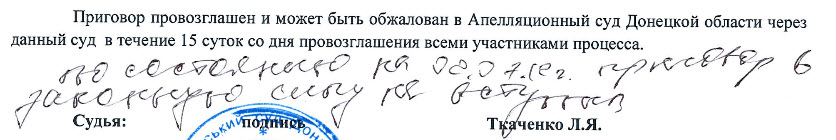 Приговор провозглашен и может быть обжалован в Апелляционный суд Донецкой области через
данный суд в течение 15 суток со дня провозглашения всеми участниками процесса.
по состоянию на 08.07. приговор в
законную силу не вступил
Судья: подпись Ткаченко Л.Я.